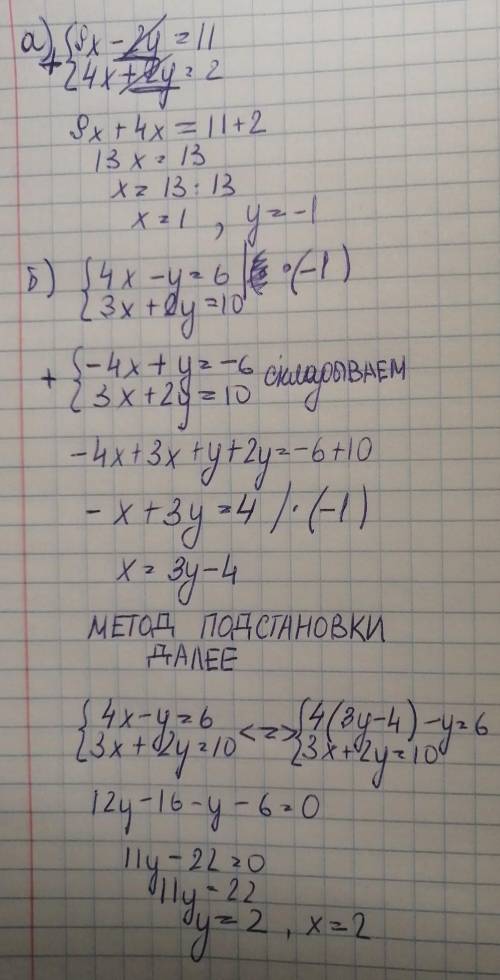 а) + { 9x - 2y = 11
{ 4x + 2y = 2
9x + 4x = 11 + 2
13x = 13
x = 13 : 13
x = 1 , y = -1
б) { 4x - y = 6 | · (-1)
{ 3x + 2y = 10
+ { -4x + y = -6 складываем
{ 3x + 2y = 10
-4x + 3x + y + 2y = -6 + 10
- x + 3y = 4 / · (-1)
x = 3y - 4
МЕТОД ПОДСТАНОВКИ
ДАЛЕЕ
{ 4x - y = 6 <=> { 4(3y - 4) - y = 6
{ 3x + 2y = 10 { 3x + 2y = 10
12y - 16 - y - 6 = 0
11y - 22 = 0
11y = 22
y = 2 , x = 2